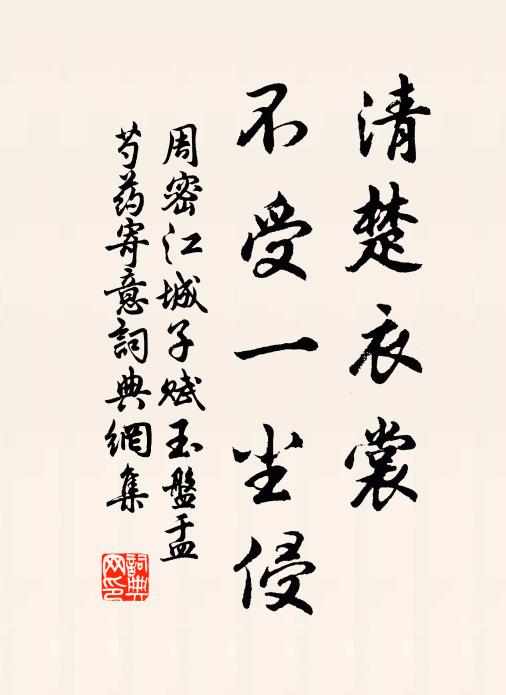 清楚衣裳
不受一尘侵
周密江城子赋玉盤盂
芍药寄意詞典網集
詞典网印